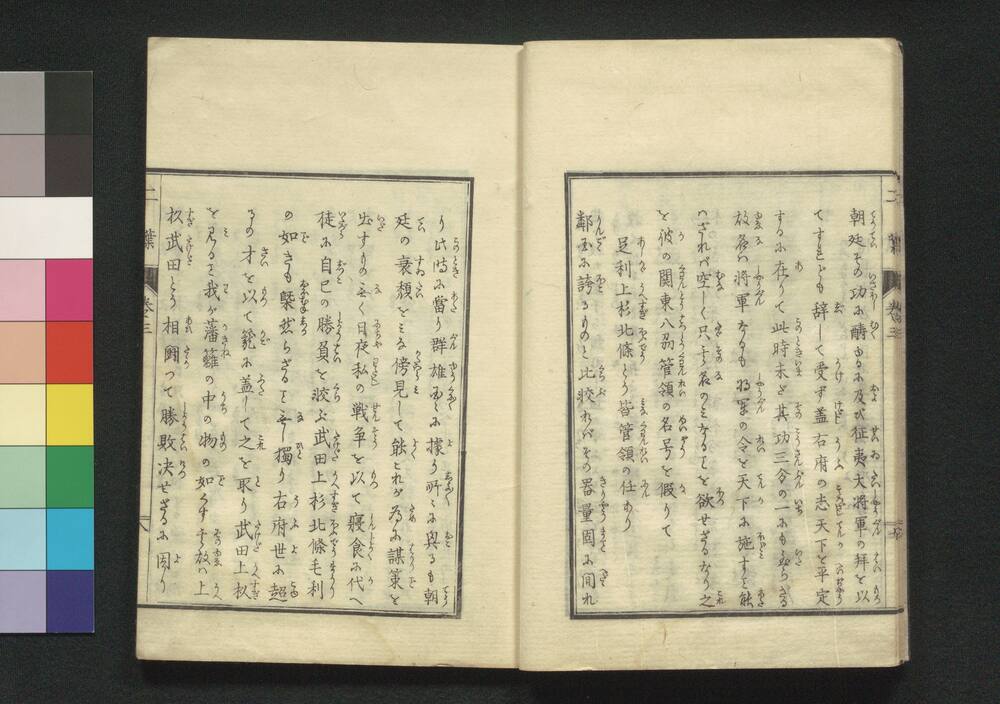 朝廷その功に酬るに及び征夷大将軍の拜を以
てすれども辞して受ず蓋右府の志天下を平定
するに在りて此時未だ其功三分の一にも至らざる
故為に将軍なるも将軍の令を天下に施すを能
はざれバ空しく只其名のミなるを欲せざるなり之
を彼の関東八州管領の名号を假りて
足利上杉北條とも皆管領の任あり
鄰玉に誇るものと比挍れバその器量固に間れ
り此時に當り群雄国々に據り所々に興るも朝
廷の衰頽をミる傍見して能とれが為に謀策を
出すもの無く日夜私の戦争を以て寢食に代へ
徒に自己の勝負を挍ぶ武田上杉北條毛利
の如きも槩然らざるを無し獨り右府世に超
るの才を以て籠に盖して之を取り武田上杉
を見るを我が藩籬の中の物の如くす其故ハ上
杉武田とも相闘つて勝敗决せざるに因り
卷三
卷三
八